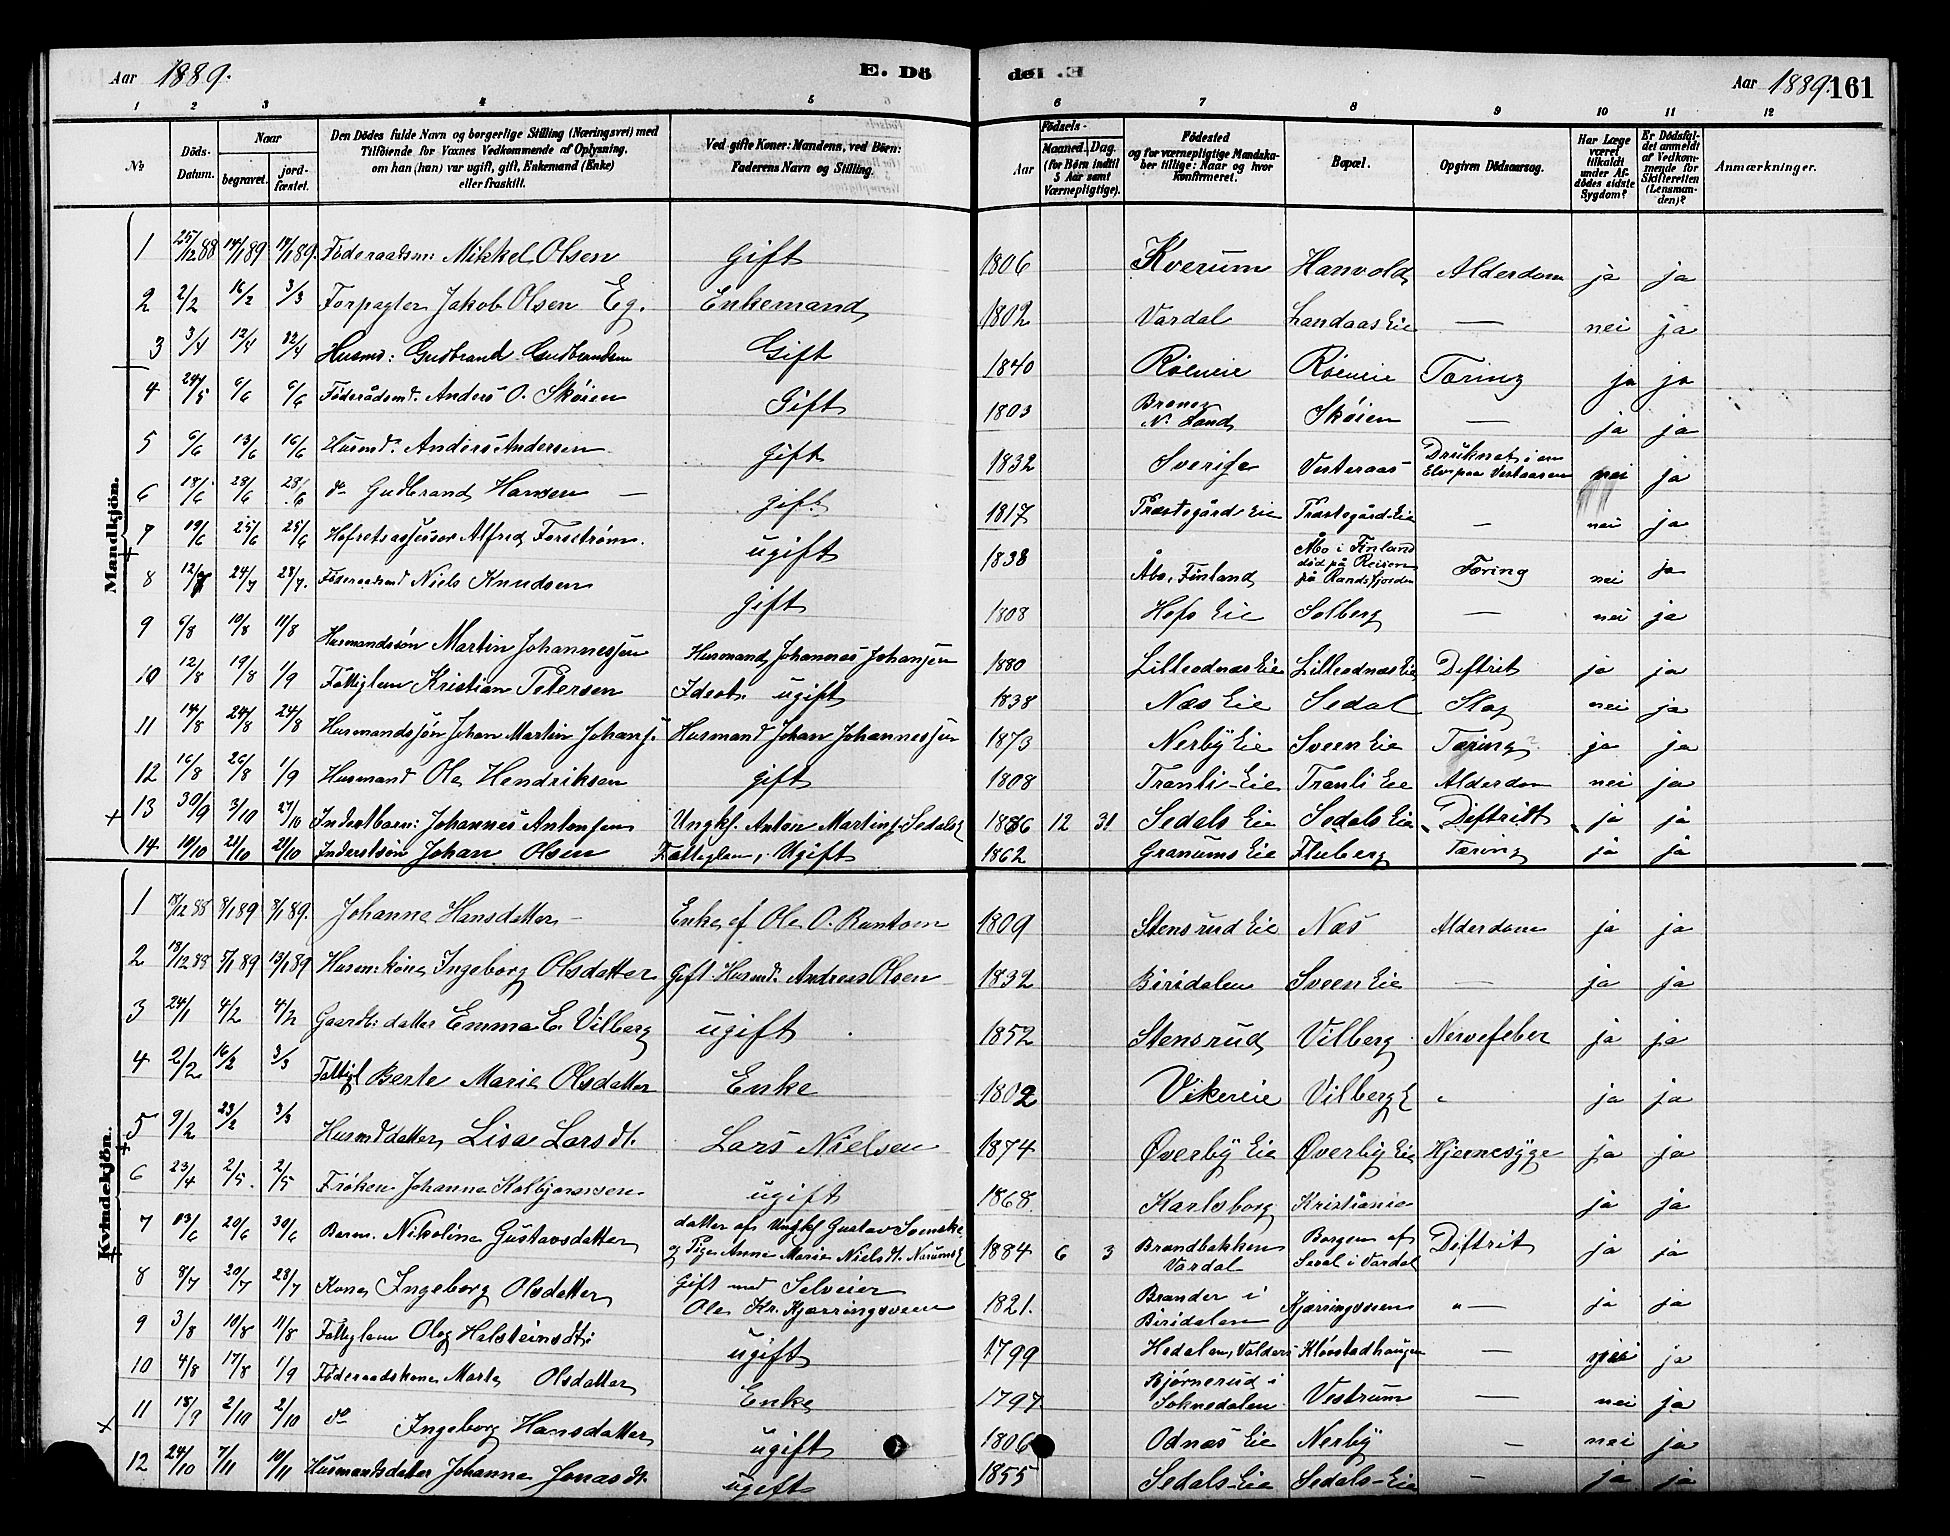 Aar 1889.
E. Dö
de E.
Aar 1889. 161
1 2 3 4 5 6 7 8 9 10 11 12
№
Döds-Datum.
Naar
begravet.
jord-fæstet.
Den Dödes fulde Navn og borgerlige Stilling (Næringsvei) med
Tilföiende for Voxnes Vedkommende af Oplysning,
om han (hun) var ugift, gift, Enkemand (Enke)
eller fraskilt.
Ved gifte Koner: Mandens, ved Börn:
Faderens Navn og Stilling.
Födsels-
Aar
Maaned. Dag.
(for Börn indtil
5 Aar samt
Værnepligtige).
Födested
og for værnepligtige Mandska-
ber tillige: Naar og hvor
konfirmeret.
Bopæl.
Opgiven Dödsaarsag.
Har Læge
været
tilkaldt
under Af-
dödes sidste
Sygdom?
Er Dödsfal-
det anmeldt
af Vedkom-
mende for
Skifteretten
(Lensman-
den)?
Anmærkninger.
Mandkjön.
1 25/12 88 14/1 89 14/1 89. Föderaadsm: Mikkel Olsen gift 1806 Kverum Hanvold Alderdom ja ja
2 2/2 16/2 3/3 Forpagter Jakob Olsen Eg. Enkemand 1802 Vardal Landaas Eie — nei ja
3 3/4 12/4 22/4 Husmd: Gudbrand Gudbrandsen Gift 1840 Röieneie Röieneie Tæring ja ja
4 24/5 6/6 6/6 Föderådsmd. Anders O. Skøien Gift 1803 N. Land Skøien — ja ja
5 6/6 13/6 16/6 Husmd. Anders Andersen gift 1832 Sverige Vesteraas Druknet i en Elv paa Vestaasen nei ja
6 18/6 23/6 23/6 do Gudbrand Hansen — gift 1817 Præstegård Eie Præstegård Eie — nei ja
7 19/6 25/6 25/6 Hofretsassessor Alfred Forström. ugift 1838 Åbo, Finland Åbo i Finland död på Reisen på Randsfjorden Tæring nei ja
8 12/7 24/7 28/7. Föderaadsmd Niels Knudsen gift 1808 Hofs Eie Solberg — nei ja
9 6/8 10/8 11/8 Husmandssön Martin Johannessen Husmand Johannes Johansen 1880 Lilleodnæs Eie Lilleodnæs Eie Diftrit ja ja
10 12/8 19/8 1/9 Fattiglem Kristian Petersen Ideot. ugift 1838 Næs Eie Sedal Slag nei ja
11 14/8 24/8 24/8 Husmandssön Johan Martin Johans. Husmand Johan Johannessen 1873 Nerby Eie Sveen Eie Tæring ja ja
12 16/8 26/8 1/9 Husmand Ole Hendriksen gift 1808 Tranli-Eie Tranli Eie Alderdom nei ja
13 30/9 3/10 27/10 Inderstbarn: Johannes Antonsen Ungkf. Anton Martins. Sedals E 1886 12 31 Sedals Eie Sedals Eie Diftridt ja ja
14 19/10 21/10 21/10 Inderstsön Johan Olsen Fattiglem, Ugift 1862 Granums Eie Fluberg Tæring ja ja
Kvindekjön.
1 18/12 88 8/1 89 8/1 89. Johanne Hansdatter — Enke ef Ole O. Rantom 1809 Stensrud Eie Næs Alderdom ja ja
2 18/12 88 5/1 89 13/1 89 Husm.kone Ingeborg Olsdatter Gift. Husmd. Andreas Olsen 1832 Biridalen Sveen Eie — ja ja
3 24/1 4/2 4/2 Gaardb: datter Emma E. Vilberg ugift 1852 Stensrud Vilberg Nervefeber ja ja
4 2/2 16/2 3/3 Fattigl Berte Marie Olsdatter Enke 1802 Vikereie Vilberg E " ja ja
5 9/2 23/2 3/3 Husmd datter Lisa Larsdt. Lars Nielsen 1874 Øverby Eie Øverby Eie Hjernesyge ja ja
6 23/4 2/5. 2/5 Fröken Johanna Kolbjørnsen ugift 1868 Karlsborg Kristiania ja ja
7 13/6 20/6 30/6 Barn. Nikoline Gustavsdatter datter af Ungkf Gustav Svenske og Pige Anne Marie Nielsdt. Narums E 1884 6 3 Brandbakken Vardal Borgen af Seval i Vardal Diftrit ja ja
8 8/7 20/7 28/7 Kone Ingeborg Olsdatter Gift med Selveier Ole Kr. Kjærringsveen 1821. Brander i Biridalen Kjærringsveen " — ja ja
9 3/8 10/8 11/8 Fattiglem Oleg Halsteinsdt: ugift 1799 Hedalen, Valders Kløvstadhaugen — nei ja
10 4/8 17/8 1/9 Föderaadskone Marte Olsdatter Enke 1797 Bjørnerud i Soknedalen Vestrum — nei ja
11 18/9 2/10 2/10 do Ingeborg Hansdatter ugift 1806 Odnæs Eie Nerby — nei ja
12 24/10 7/11 10/11 Husmandsdatter Johanne Jonasdt. ugift 1855 Sedals-Eie Sedals-Eie — ja ja